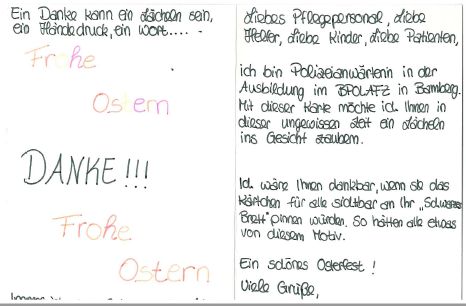 Ein Danke kann ein Lächeln sein,
ein Händedruck, ein Wort.....
Frohe
Ostern
DANKE!!!
Frohe
Ostern
Liebes Pflegepersonal, Liebe
Helfer, Liebe Kinder, Liebe Patienten,
ich bin Polizeianwärterin in der
Ausbildung im BPOLAFZ in Bamberg.
Mit dieser Karte möchte ich Ihnen in
dieser ungewissen Zeit ein Lächeln
ins Gesicht zaubern.
Ich wäre Ihnen dankbar, wenn sie das
Kärtchen für alle sichtbar an Ihr „Schwarzes
Brett" pinnen würden. So hätten alle etwas
von diesem Motiv.
Ein schönes Osterfest!
Viele Grüße,